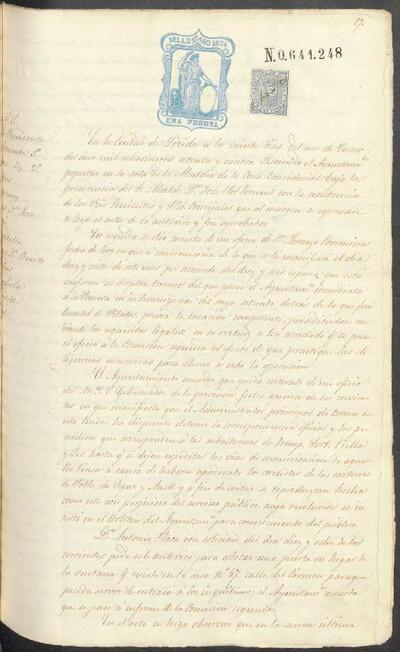 17.
SELLO 11º AÑO 1874
N.0,641,248
UNA PESETA
En la Ciudad de Lérida a los veinte dias del mes de Enero
del año mil ochocientos setenta y cuatro. Reunido el Ayuntamto
popular en la sala de la Alcaldia de la Casa Consistorial bajo la
presidencia del Sr. Alcalde Dn José Sol con la asistencia
de los Sres Tenientes y Sres Concejales que al margen se espresan
se leyó el acta de la anterior y fué aprobada.
En seguida se dió cuenta de un oficio de Dn Lorenzo Corominas
fecha de hoy en que á consecuencia de lo que se le manifestó el dia
diez y siete de este mes por acuerdo del diez y seis espresa que está
conforme en aceptar terreno del que posee el Ayuntamto inmediato
á la
en indemnizacion del suyo situado detras de la que fué
previa la tasacion competente, procediendose me-
diante los requisitos legales: en su virtud se ha acordado q. se pase
el oficio á la Comision segunda al efecto de que practique las di-
ligencias necesarias para llevar á cabo la operacion.
El Ayuntamiento acuerda que quede enterado de un oficio
del M. I. S. Gobernador de la provincia fecha quince de los corrien-
tes en que manifiesta que el Administrador principal de Correos de
esta Ciudad ha dispuesto detener la correspondencia oficial y los pe-
riódicos que correspondan á las subalternas de Tremp, Sort, Viella
y Les hasta q. se dejen espeditas las vias de comunicacion de aque-
lla linea á causa de haberse apoderado los carlistas de las carterias
de Pobla de Segur y y á fin de evitar se reproduzcan hechos
como este con perjuicio del servicio publico, cuya resolucion se in-
serte en el Boletin del Ayuntamto para conocimiento del publico.
Dn Antonio Roca con solicitud del dia diez y ocho de los
corrientes pide se le autorice para colocar una puerta en lugar de
la ventana q. existe en la casa Nº 67 calle del Carmen para que
pueda servir de entrada á los inquilinos; el Ayuntamto acuerda
que se pase á informe de la Comision segunda.
En el acto se hizo observar que en la sesion última